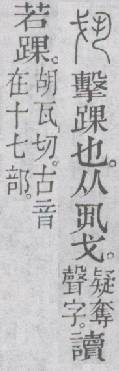 擊踝也。从丮戈。疑奪聲字。讀
若踝。胡瓦切。古音在十七部。